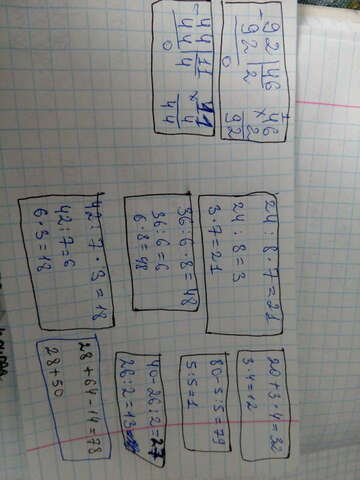 -92 | 46
92   2
0
1
×46
2
92
-44 | 11
44   4
0
×11
4
44
24:8·7=21
24:8=3
3·7=21
36:6·8=48
36:6=6
6·8=48
42:7·3=18
42:7=6
6·3=18
20+3·4=32
3·4=12
80-5:5=79
5:5=1
40-26:2=27
26:2=13
28+64-14=78
28+50